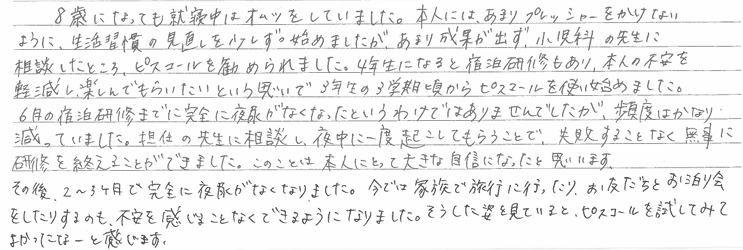 8歳になっても就寝中はオムツをしていました。本人には、あまりプレッシャーをかけない
ように、生活習慣の見直しを少しずつ始めましたが、あまり成果が出ず、小児科の先生に
相談したところ、ピスコールを勧められました。4年生になると宿泊研修もあり、本人の不安を
軽減し、楽しんでもらいたいという思いで3年生の3学期頃からピスコールを使い始めました。
6月の宿泊研修までに完全に夜尿がなくなったというわけではありませんでしたが、頻度はかなり
減っていました。担任の先生に相談し、夜中に一度起こしてもらうことで、失敗することなく無事に
研修を終えることができました。このことは本人にとって大きな自信になったと思います。
その後、2~3ヶ月で完全に夜尿がなくなりました。今では家族で旅行に行ったり、お友だちとお泊り会
をしたりするのも、不安を感じることなくできるようになりました。そうした姿を見ていると、ピスコールを試してみて
よかったなーと感じます。